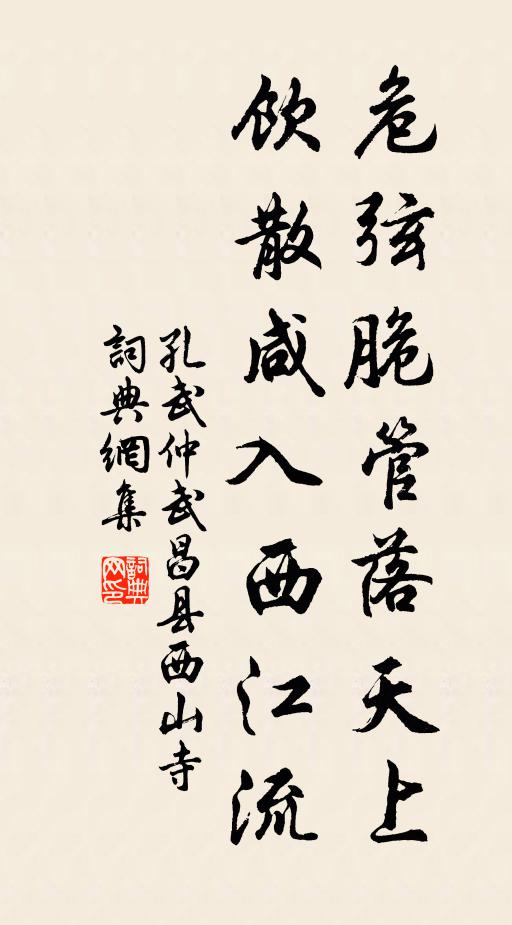 危弦脆管落天上
飲散咸入西江流
孔武仲武昌县西山寺
詞典網集
詞典网印